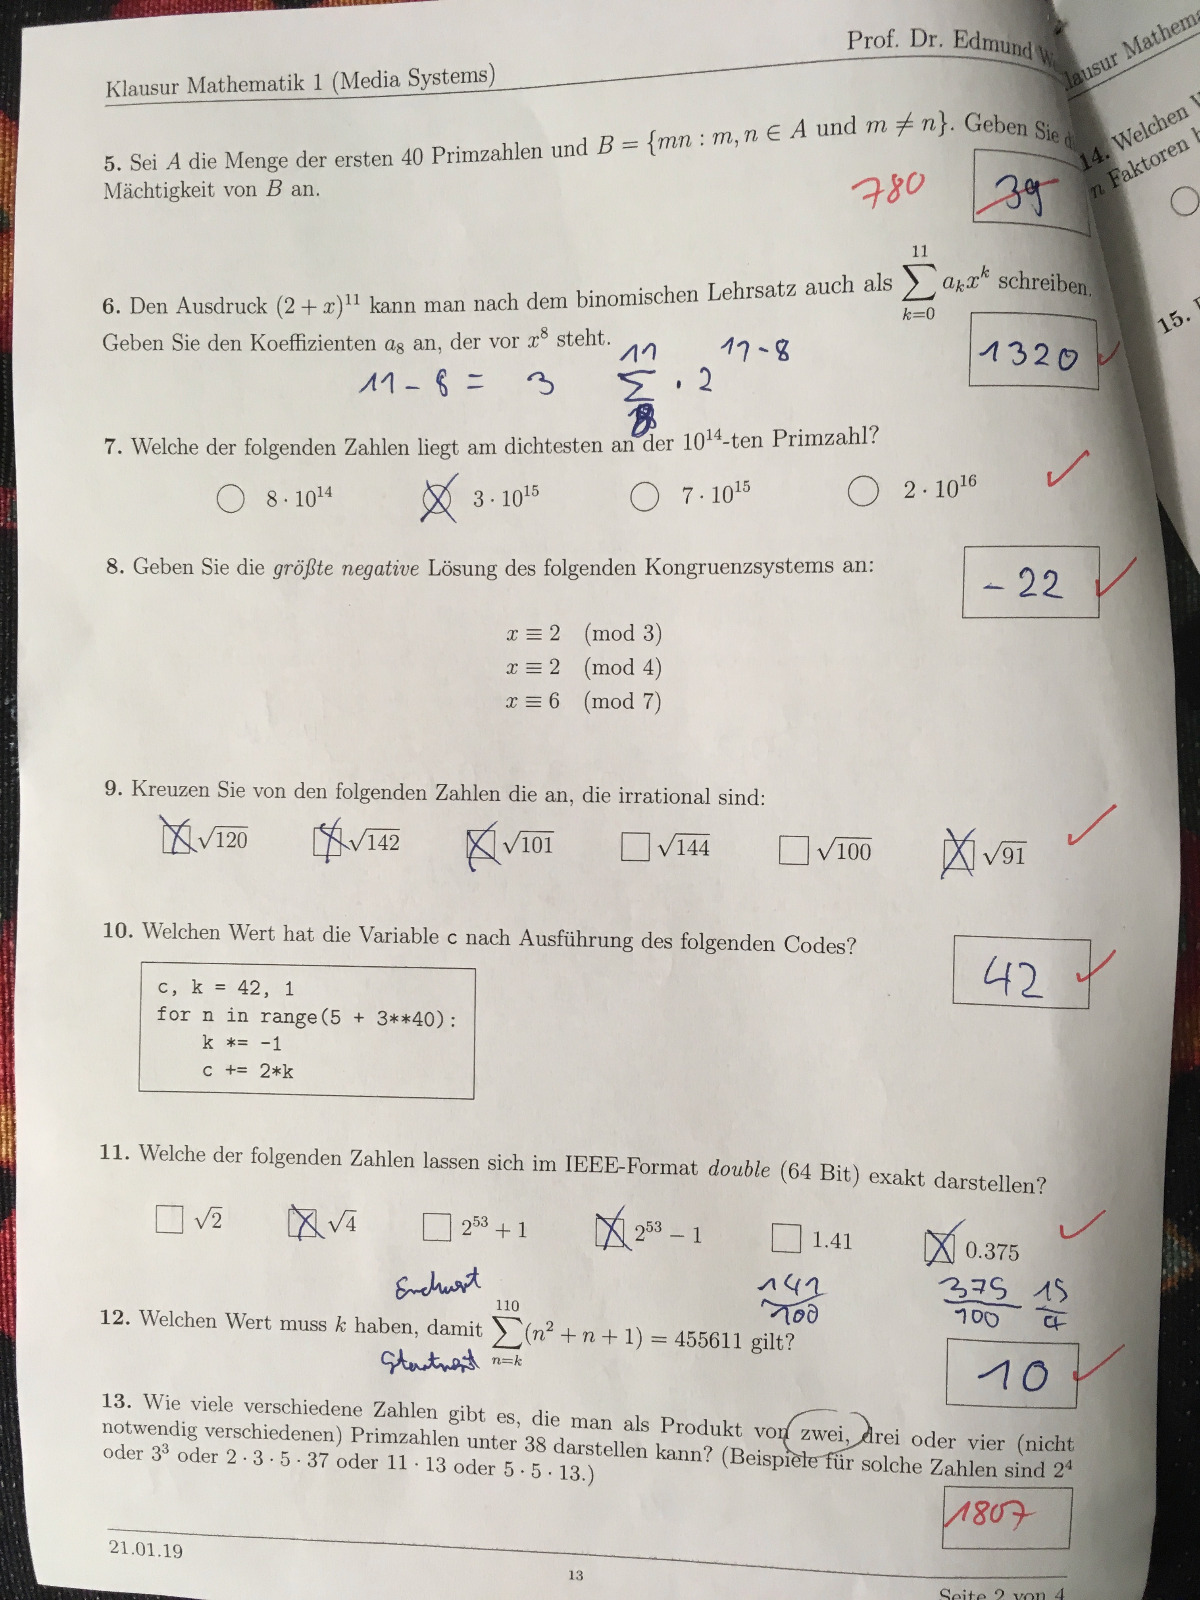 Prof. Dr. Edmund
Klausur Mathematik 1 (Media Systems)
5. Sei A die Menge der ersten 40 Primzahlen und B = {mn : m, n ∈ A und m ≠ n}. Geben Sie
Mächtigkeit von B an.
780 39
6. Den Ausdruck (2 + x)¹¹ kann man nach dem binomischen Lehrsatz auch als ∑_{k=0}^{11} a_k x^k schreiben.
Geben Sie den Koeffizienten a₈ an, der vor x⁸ steht.
1320 ✓
11 - 8 = 3 ∑_{8}^{11} · 2^{11-8}
7. Welche der folgenden Zahlen liegt am dichtesten an der 10¹⁴-ten Primzahl?
◯ 8 · 10¹⁴ ⊗ 3 · 10¹⁵ ◯ 7 · 10¹⁵ ◯ 2 · 10¹⁶ ✓
8. Geben Sie die größte negative Lösung des folgenden Kongruenzsystems an:
-22 ✓
x ≡ 2 (mod 3)
x ≡ 2 (mod 4)
x ≡ 6 (mod 7)
9. Kreuzen Sie von den folgenden Zahlen die an, die irrational sind:
☒ √120 ☒ √142 ☒ √101 ☐ √144 ☐ √100 ☒ √91 ✓
10. Welchen Wert hat die Variable c nach Ausführung des folgenden Codes?
42 ✓
c, k = 42, 1
for n in range(5 + 3**40):
k *= -1
c += 2*k
11. Welche der folgenden Zahlen lassen sich im IEEE-Format double (64 Bit) exakt darstellen?
☐ √2 ☒ √4 ☐ 2⁵³ + 1 ☒ 2⁵³ − 1 ☐ 1.41 ☒ 0.375 ✓
Endwert 141/100 375/100 15/4
12. Welchen Wert muss k haben, damit ∑_{n=k}^{110} (n² + n + 1) = 455611 gilt?
Startwert
10 ✓
13. Wie viele verschiedene Zahlen gibt es, die man als Produkt von zwei, drei oder vier (nicht
notwendig verschiedenen) Primzahlen unter 38 darstellen kann? (Beispiele für solche Zahlen sind 2⁴
oder 3³ oder 2 · 3 · 5 · 37 oder 11 · 13 oder 5 · 5 · 13.)
1807
21.01.19
13
Seite 2 von 4
lausur Mathema
14. Welchen
n Faktoren
15.